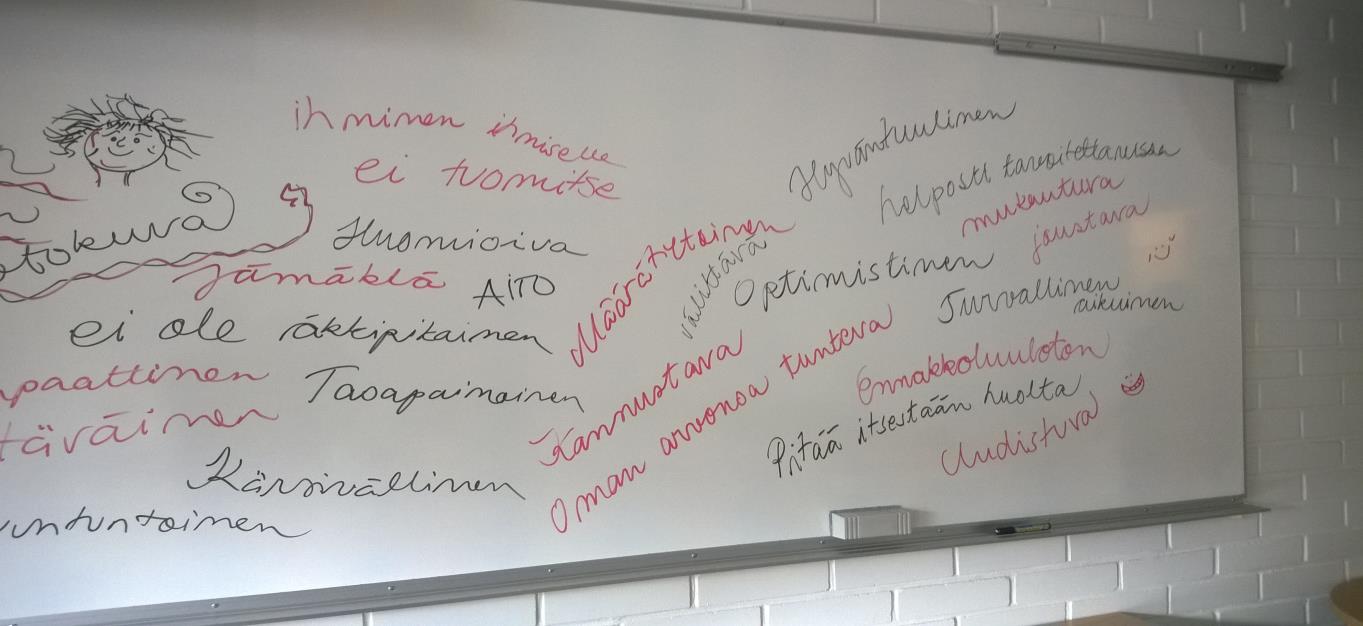 ihminen ihmiselle
ei tuomitse
Huomioiva
jämäkkä
AITO
ei ole äkkipikainen
Tasapainoinen
Kärsivällinen
Määrätietoinen
välittävä
Kannustava
Oman arvonsa tunteva
Hyväntuulinen
helposti tavoitettavissa
mukautuva
joustava
Optimistinen
Turvallinen
aikuinen
Ennakkoluuloton
Pitää itsestään huolta
Uudistuva